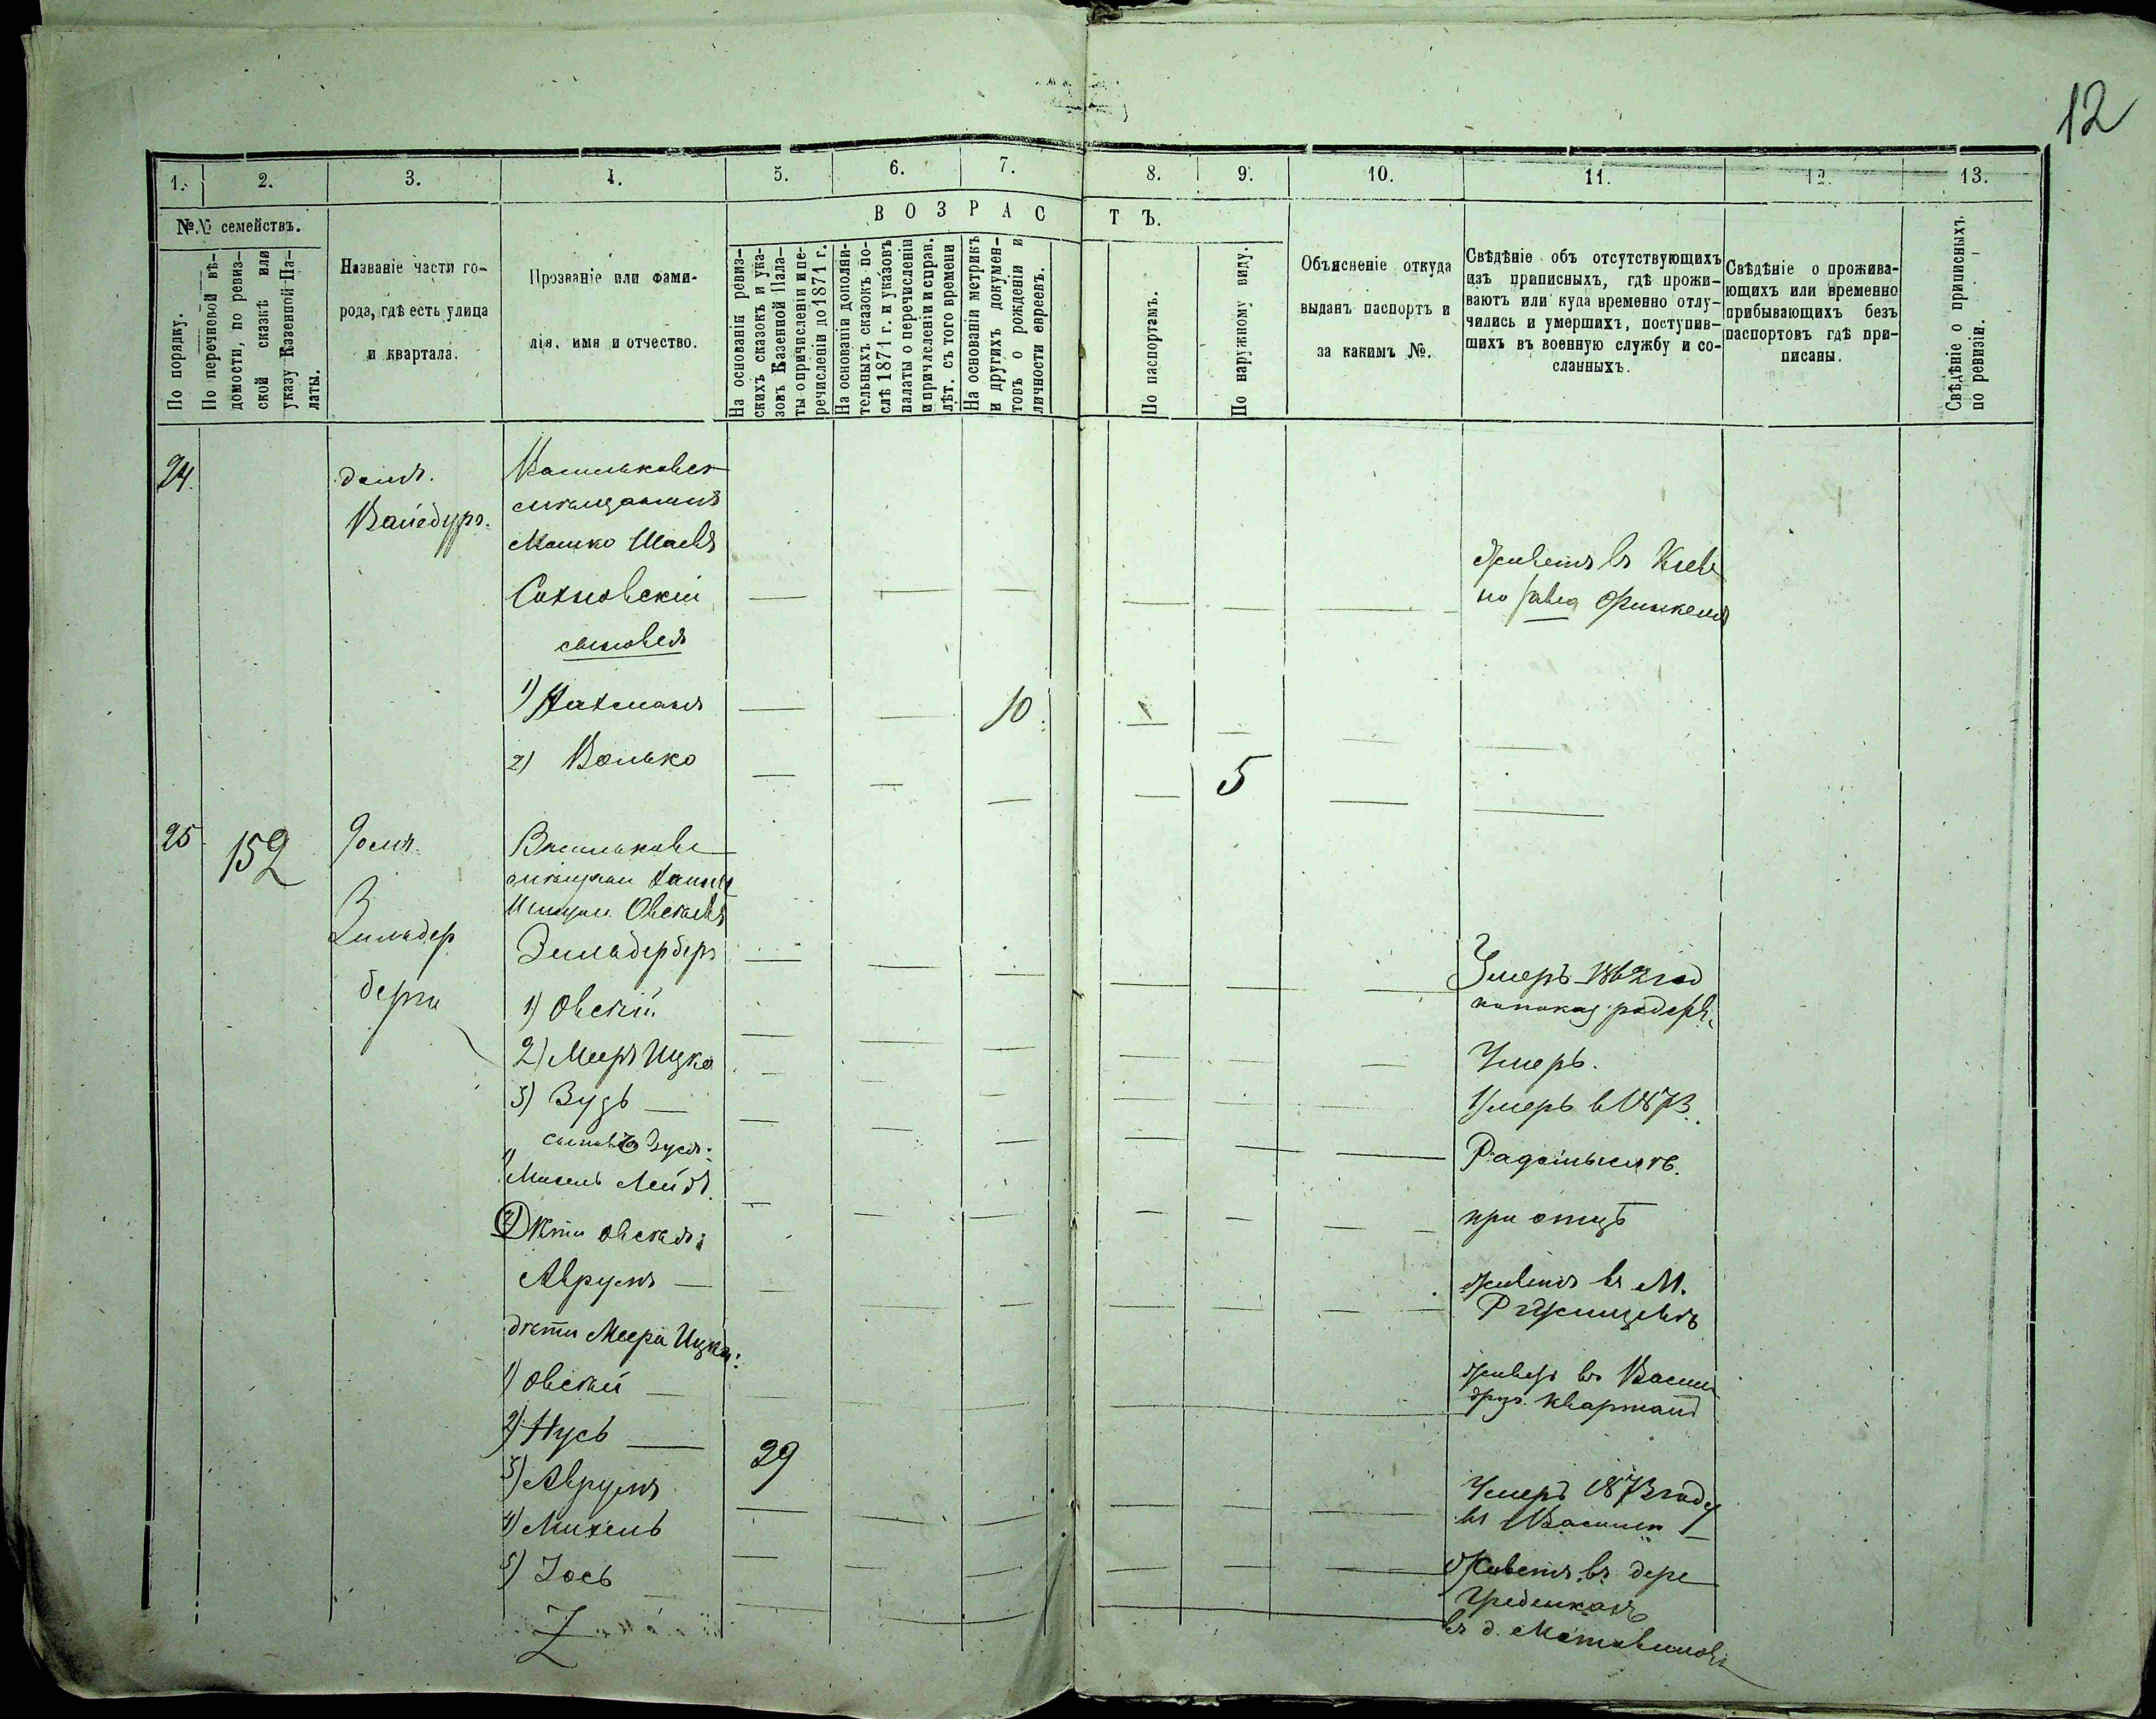 12
1. 2. 3. 4. 5. 6. 7. 8. 9. 10. 11. 12. 13.
№№ семействъ.
ВОЗРАСТЪ.
По порядку.
По перечневой вѣ-
домости, по ревиз-
ской сказкѣ или
указу Казенной Па-
латы.
Названіе части го-
рода, гдѣ есть улица
и квартала.
Прозваніе или фами-
лія, имя и отчество.
На основаніи ревиз-
скихъ сказокъ и ука-
зовъ Казенной Пала-
ты о причисленіи и пе-
речисленіи до 1871 г.
На основаніи дополни-
тельныхъ сказокъ по-
слѣ 1871 г. и указовъ
палаты о перечисленіи
и причисленіи и справ.
лѣт. съ того времени
На основаніи метрикъ
и другихъ докумен-
товъ о рожденіи и
личности евреевъ.
По паспортамъ.
По наружному виду.
Объясненіе откуда
выданъ паспортъ и
за какимъ №.
Свѣдѣніе объ отсутствующихъ
изъ приписныхъ, гдѣ прожи-
ваютъ или куда временно отлу-
чились и умершихъ, поступив-
шихъ въ военную службу и со-
сланныхъ.
Свѣдѣніе о прожива-
ющихъ или временно
прибывающихъ безъ
паспортовъ гдѣ при-
писаны.
Свѣдѣніе о приписныхъ
по ревизіи.
24.
домъ.
Васильковск
мѣщанинъ
Мошко Шаевъ
Сахновскій
Живетъ въ Кіевѣ
сыновья
1) Нахманъ
10.
2) Волько
5
25
152
домъ.
Зильбер
берга
Васильковс
Зильберберг
Умеръ 1862 год
1) Овсѣй
2) Мееръ Ицко
Умеръ.
3) Зусь
Умеръ в 1873.
Зуся:
Радомыслѣ.
Михель Лейба
при отцѣ
Дѣти Овсѣя:
Аврумъ
живетъ въ М.
Ржищевѣ
дѣти Меера Ицка:
1) Овсѣй
живет въ Васил
друг. квартал
2) Нусь
29
3) Аврумъ
Умеръ 1873 году
въ Васильк
4) Михель
Живетъ въ дере
Гребенкахъ
5) Іось
въ д.